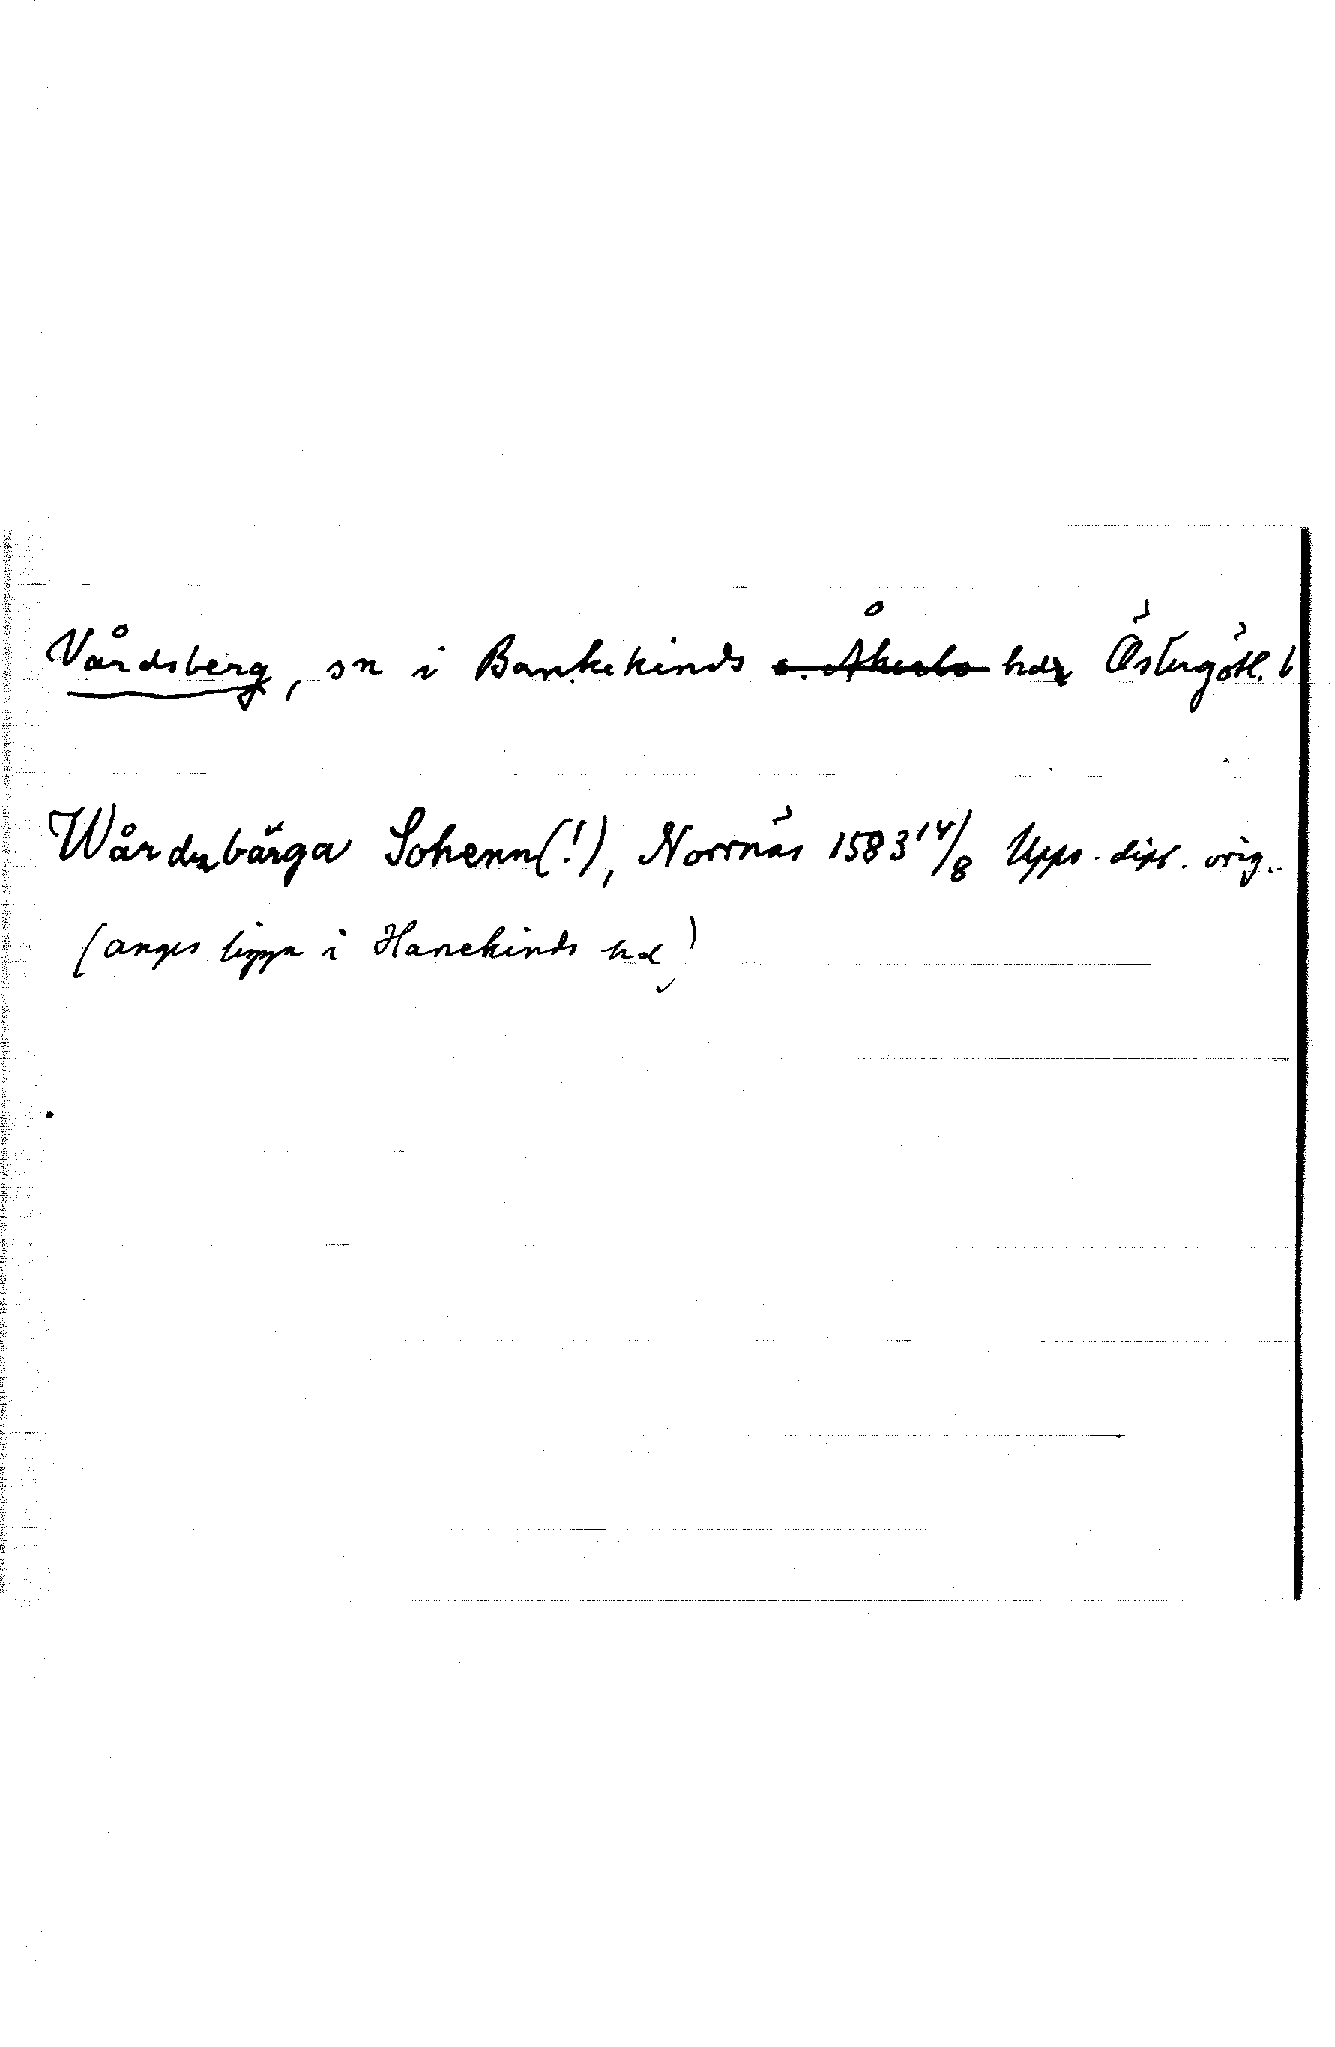 Vårdsberg, sn i Bankekinds hd Östergötl. l
Wårdzbärga Sohenn(!), Norrnäs 1583 14/8 Upps. dipl. orig.
(anges ligga i Hanekinds hd)